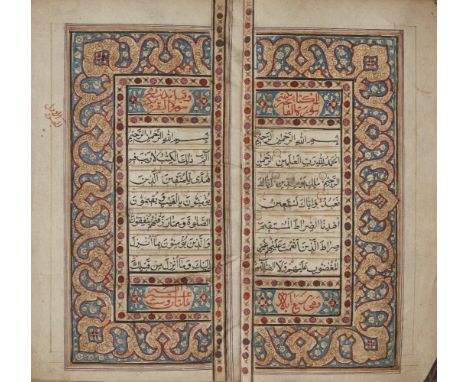 بسم الله الرحمن الرحيم
الحمد لله رب العلمين الرحمن
الرحيم ملك يوم الدين اياك
نعبد واياك نستعين
اهدنا الصراط المستقيم
صراط الذين انعمت عليهم غير
المغضوب عليهم ولا الضالين
بسم الله الرحمن الرحيم
الم ذلك الكتب لا ريب فيه
هدى للمتقين الذين
يؤمنون بالغيب ويقيمون
الصلوة ومما رزقنهم ينفقون
والذين يؤمنون بما انزل
اليك وما انزل من قبلك